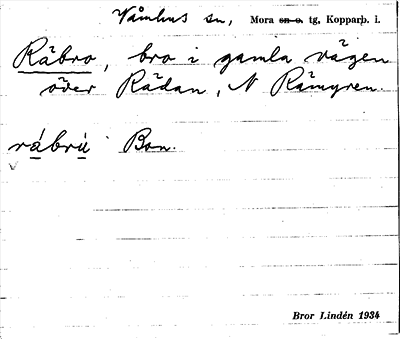 Våmhus sn, Mora sn o. tg, Kopparb. l.
Råbro, bro i gamla vägen
över Rådan, N Råmyren.
råbrù Bon.
Bror Lindén 1934